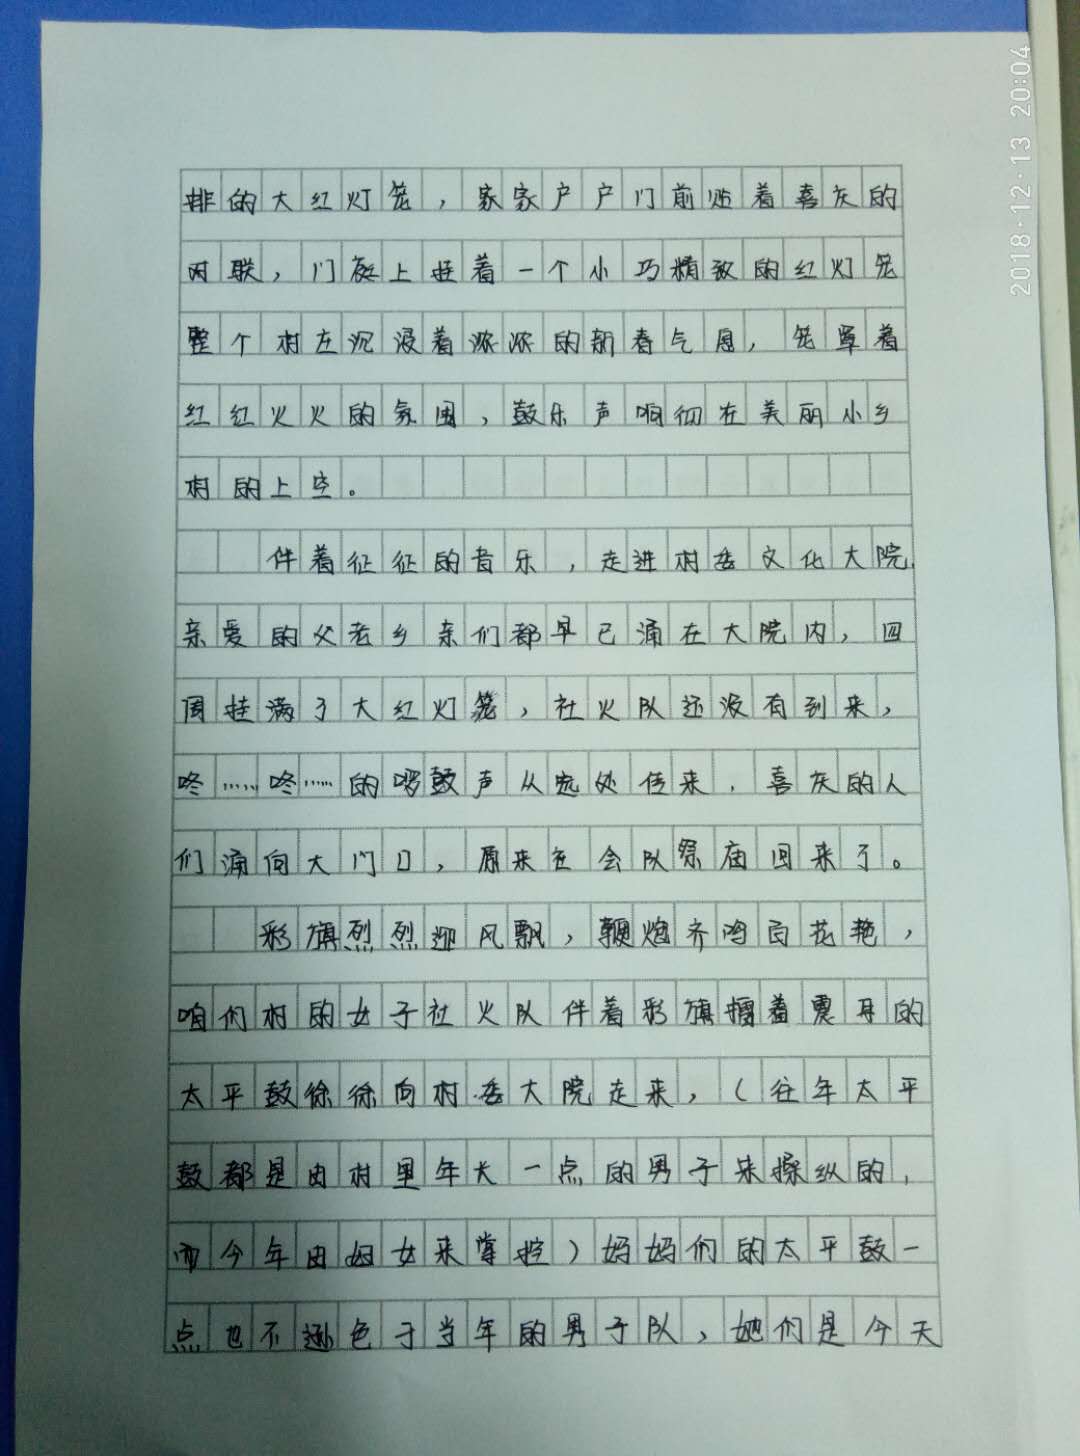 排的大红灯笼，家家户户门前贴着喜庆的
对联，门庭上挂着一个小巧精致的红灯笼
整个村庄沉浸着浓浓的新春气息，笼罩着
红红火火的氛围，鼓乐声响彻在美丽小乡
村的上空。
伴着征征的音乐，走进村委文化大院
亲爱的父老乡亲们都早已涌在大院内，四
周挂满了大红灯笼，社火队还没有到来，
咚……咚……的啰鼓声从远处传来，喜庆的人
们涌向大门口，原来社会队祭庙回来了。
彩旗烈烈迎风飘，鞭炮齐鸣百花艳，
咱们村的女子社火队伴着彩旗擂着震耳的
太平鼓徐徐向村委大院走来，（往年太平
鼓都是由村里年长一点的男子来操纵的，
而今年由妇女来掌控）妈妈们的太平鼓一
点也不逊色于当年的男子队，她们是今天
2018·12·13 20:04